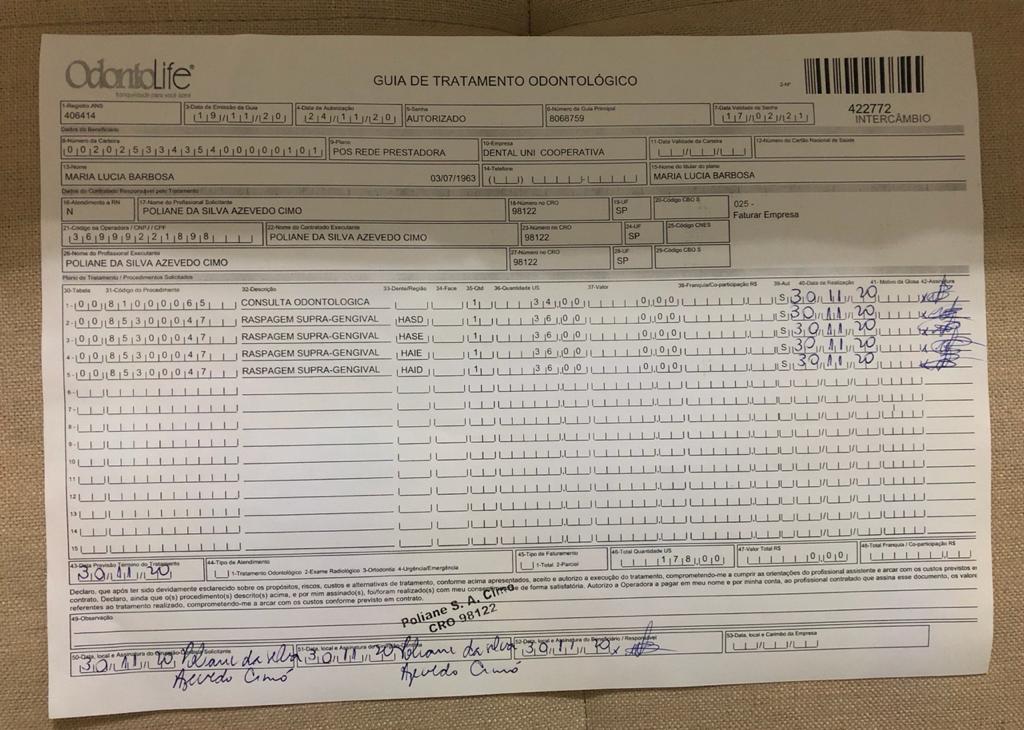 OdontoLife®
tranquilidade para você sorrir
GUIA DE TRATAMENTO ODONTOLÓGICO
2-Nº
422772
INTERCÂMBIO
1-Registro ANS 3-Data de Emissão da Guia 4-Data de Autorização 5-Senha 6-Número da Guia Principal 7-Data Validade da Senha
406414 19/11/20 24/11/20 AUTORIZADO 8068759 17/02/21
Dados do Beneficiário
8-Número da Carteira 9-Plano 10-Empresa 11-Data Validade da Carteira 12-Número do Cartão Nacional de Saúde
00202533435400000101 POS REDE PRESTADORA DENTAL UNI COOPERATIVA
13-Nome 14-Telefone 15-Nome do titular do plano
MARIA LUCIA BARBOSA 03/07/1963 MARIA LUCIA BARBOSA
Dados do Contratado Responsável pelo Tratamento
16-Atendimento a RN 17-Nome do Profissional Solicitante 18-Número no CRO 19-UF 20-Código CBO S
N POLIANE DA SILVA AZEVEDO CIMO 98122 SP
025 -
Faturar Empresa
21-Código na Operadora / CNPJ / CPF 22-Nome do Contratado Executante 23-Número no CRO 24-UF 25-Código CNES
36999221898 POLIANE DA SILVA AZEVEDO CIMO 98122 SP
26-Nome do Profissional Executante 27-Número no CRO 28-UF 29-Código CBO S
POLIANE DA SILVA AZEVEDO CIMO 98122 SP
Plano de Tratamento / Procedimentos Solicitados
30-Tabela 31-Código do Procedimento 32-Descrição 33-Dente/Região 34-Face 35-Qtd 36-Quantidade US 37-Valor 38-Franquia/Co-participação R$ 39-Aut 40-Data de Realização 41- Motivo da Glosa 42-Assinatura
1- 00 81000065 CONSULTA ODONTOLOGICA 1 34 00 0 00 S 30/11/20
2- 00 85300047 RASPAGEM SUPRA-GENGIVAL HASD 1 36 00 0 00 S 30/11/20
3- 00 85300047 RASPAGEM SUPRA-GENGIVAL HASE 1 36 00 0 00 S 30/11/20
4- 00 85300047 RASPAGEM SUPRA-GENGIVAL HAIE 1 36 00 0 00 S 30/11/20
5- 00 85300047 RASPAGEM SUPRA-GENGIVAL HAID 1 36 00 0 00 S 30/11/20
6-
7-
8-
9-
10
11
12
13
14
15
43-Data Previsão Término do Tratamento 44-Tipo de Atendimento 45-Tipo de Faturamento 46-Total Quantidade US 47-Valor Total R$ 48-Total Franquia / Co-participação R$
30/11/20 1-Tratamento Odontológico 2-Exame Radiológico 3-Ortodontia 4-Urgência/Emergência 1-Total 2-Parcial 178 00 0 00
Declaro, que após ter sido devidamente esclarecido sobre os propósitos, riscos, custos e alternativas de tratamento, conforme acima apresentados, aceito e autorizo a execução do tratamento, comprometendo-me a cumprir as orientações do profissional assistente e arcar com os custos previstos em
contrato. Declaro, ainda que o(s) procedimento(s) descrito(s) acima, e por mim assinado(s), foi/foram realizado(s) com meu consentimento e de forma satisfatória. Autorizo a Operadora a pagar em meu nome e por minha conta, ao profissional contratado que assina esse documento, os valores
referentes ao tratamento realizado, comprometendo-me a arcar com os custos conforme previsto em contrato.
49-Observação
Poliane S. A. Cimo
CRO 98122
50-Data, local e Assinatura do Cirurgião-Dentista Solicitante 51-Data, local e Assinatura do 52-Data, local e Assinatura do Beneficiário / Responsável 53-Data, local e Carimbo da Empresa
30/11/20 Poliane da Silva 30/11/20 Poliane da Silva 30/11/20
Azevedo Cimó Azevedo Cimó